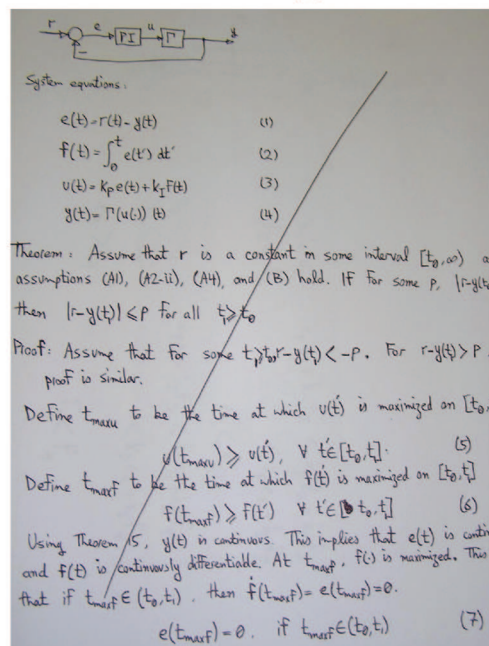 r e PI u Γ y
−
System equations:
e(t)=r(t)-y(t) (1)
f(t)=∫₀ᵗ e(t′) dt′ (2)
u(t)=k_P e(t)+k_I f(t) (3)
y(t)=Γ(u(·))(t) (4)
Theorem: Assume that r is a constant in some interval [t₀,∞)
assumptions (A1), (A2-ii), (A4), and (B) hold. If for some ρ, |r-y(t₀
then |r-y(t₁)| ≤ρ for all t₁≥t₀
Proof: Assume that for some t₁≥t₀, r-y(t₁)<-ρ. For r-y(t₁)>ρ
proof is similar.
Define t_maxu to be the time at which u(t′) is maximized on [t₀,
u(t_maxu)≥u(t′), ∀ t′∈[t₀,t₁]. (5)
Define t_maxf to be the time at which f(t′) is maximized on [t₀,t₁]
f(t_maxf)≥f(t′) ∀ t′∈[t₀,t₁] (6)
Using Theorem 15, y(t) is continuous. This implies that e(t) is
and f(t) is continuously differentiable. At t_maxf, f(·) is maximized. This
that if t_maxf∈(t₀,t₁), then ḟ(t_maxf)=e(t_maxf)=0.
e(t_maxf)=0. if t_maxf∈(t₀,t₁) (7)